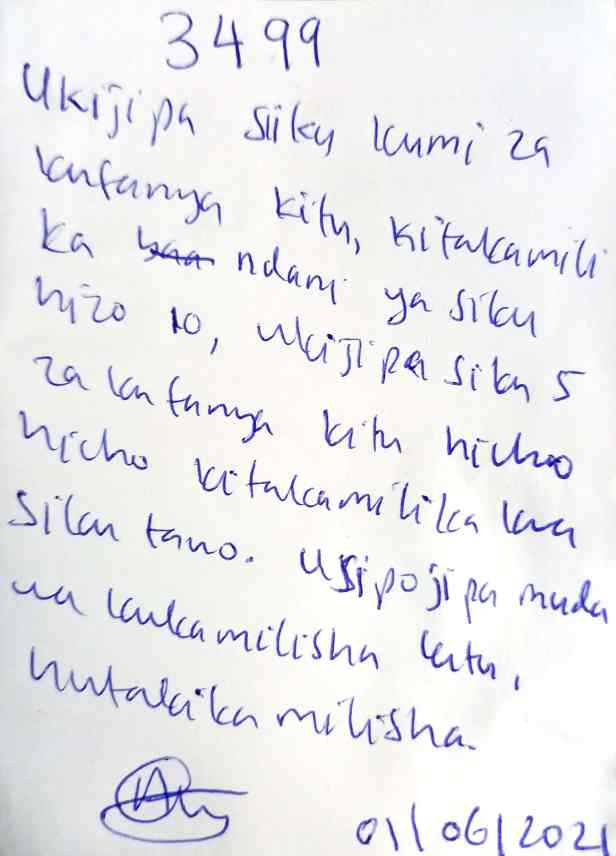 3499
Ukijipa siku kumi za
kufanya kitu, kitakamili
ka ndani ya siku
hizo 10, ukijipa siku 5
za kufanya kitu hicho
hicho kitakamilika kwa
siku tano. Usipojipa muda
wa kukamilisha kitu,
hutakikamilisha.
01/06/2021